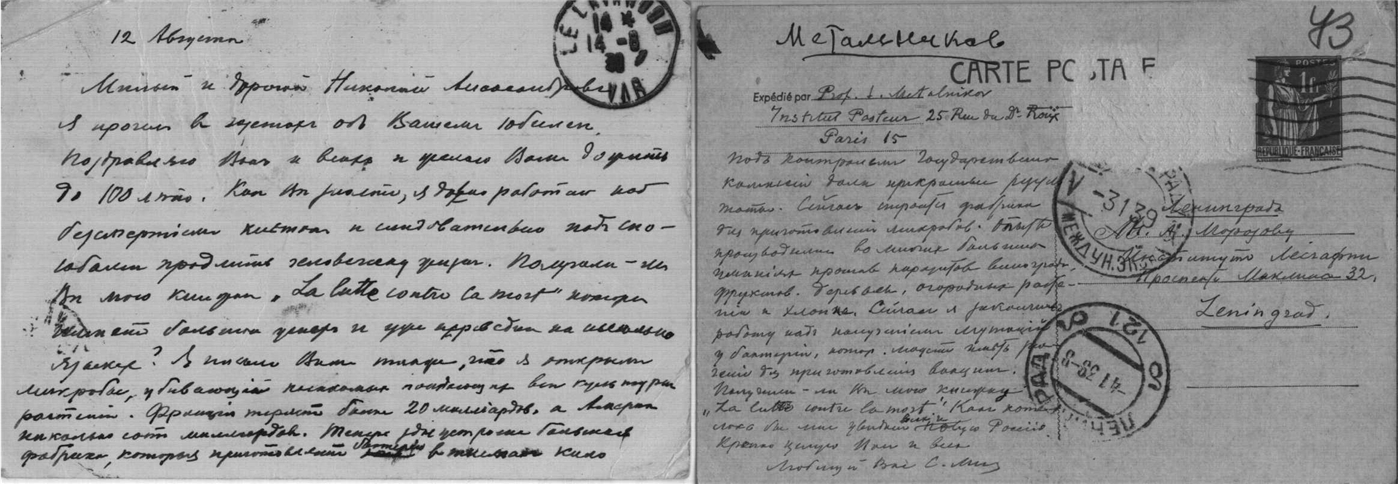 12 Августа
LE LAVANDOU
14 *
14 - 8
39
VAR
Милый и дорогой Николай Александрович
Я прочел в газетах об Вашем юбилее.
Поздравляю Вас и всех и желаю Вам дожить
до 100 лет. Как Вы знаете, я давно работаю над
безсмертием клетки и следовательно над спо-
собами продлить человеческую жизнь. Получили-ли
Вы мою книжку „La lutte contre la mort" которая
имеет большой успех и уже переведена на несколько
языках? Я писал Вам тогда, что я открыл
микробы, убивающий насекомых поедающих все культурн
растений. Франция теряет более 20 миллиардов, а Америка
несколько сот миллиардов. Теперь здесь устроена большая
фабрика, которая приготовляет в
Метальников
43
CARTE POSTALE
Expédié par Prof. S. Metalnikov
Institut Pasteur 25 Rue du Dr Roux
Paris 15
POSTES
1F
REPUBLIQUE FRANÇAISE
Под контролем Государственно
комиссий дали прекрасные резуль
таты. Сейчас строится фабрика
для приготовления микробов. Опыты
производились во многих
против паразитов винограда,
фруктов. деревьев, огородных расте-
ний и хлопка. Сейчас я заканчиваю
работу над получением мутаций
у бактерий, котор. может иметь зна-
чение для приготовления вакцин.
Получили-ли Вы мою книжку
„La lutte contre la mort". Как хоте-
лось бы мне увидать Вас и новую Россию
Крепко целую Вас и всех
Любящий Вас С. Мет
Ленинград
Н. А. Морозову
Институт Лесгафта
Проспект Маклина 32,
Leningrad.
-3 1 39
МЕЖДУН. ЭКСП
ЛЕНИНГРАД
121